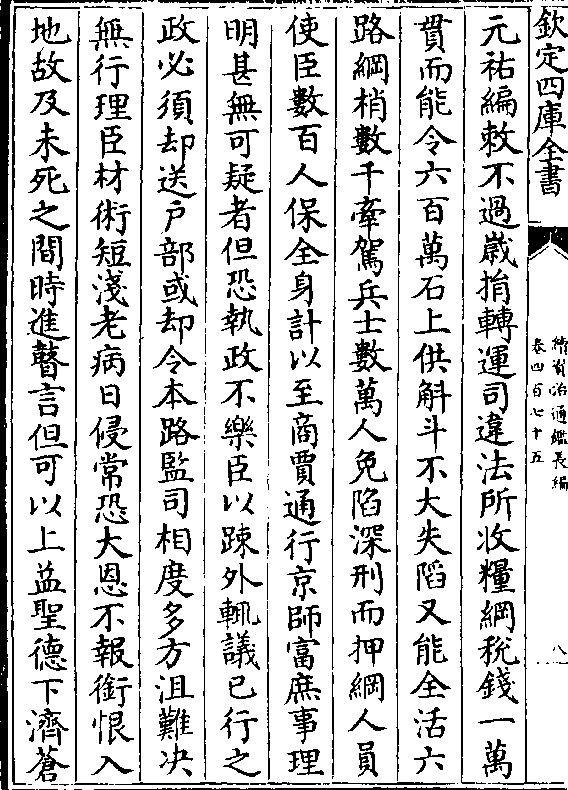 欽定四庫全書
續資治通鑑長編
卷四百七十五
八
元祐編敕不過嵗捐轉運司違法所收糧綱稅錢一萬
貫而能令六百萬石上供斛斗不大失䧟又能全活六
路綱梢數千牽駕兵士數萬人免陷深刑而押綱人員
使臣數百人保全身計以至商賈通行京師富庶事理
明甚無可疑者但恐執政不樂臣以踈外輒議已行之
政必須却送戸部或却令本路監司相度多方沮難决
無行理臣材術短淺老病日侵常恐大恩不報銜恨入
地故及未死之間時進瞽言但可以上益聖德下濟蒼